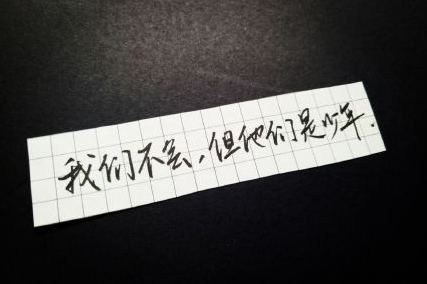 我们不会,但他们是少年.